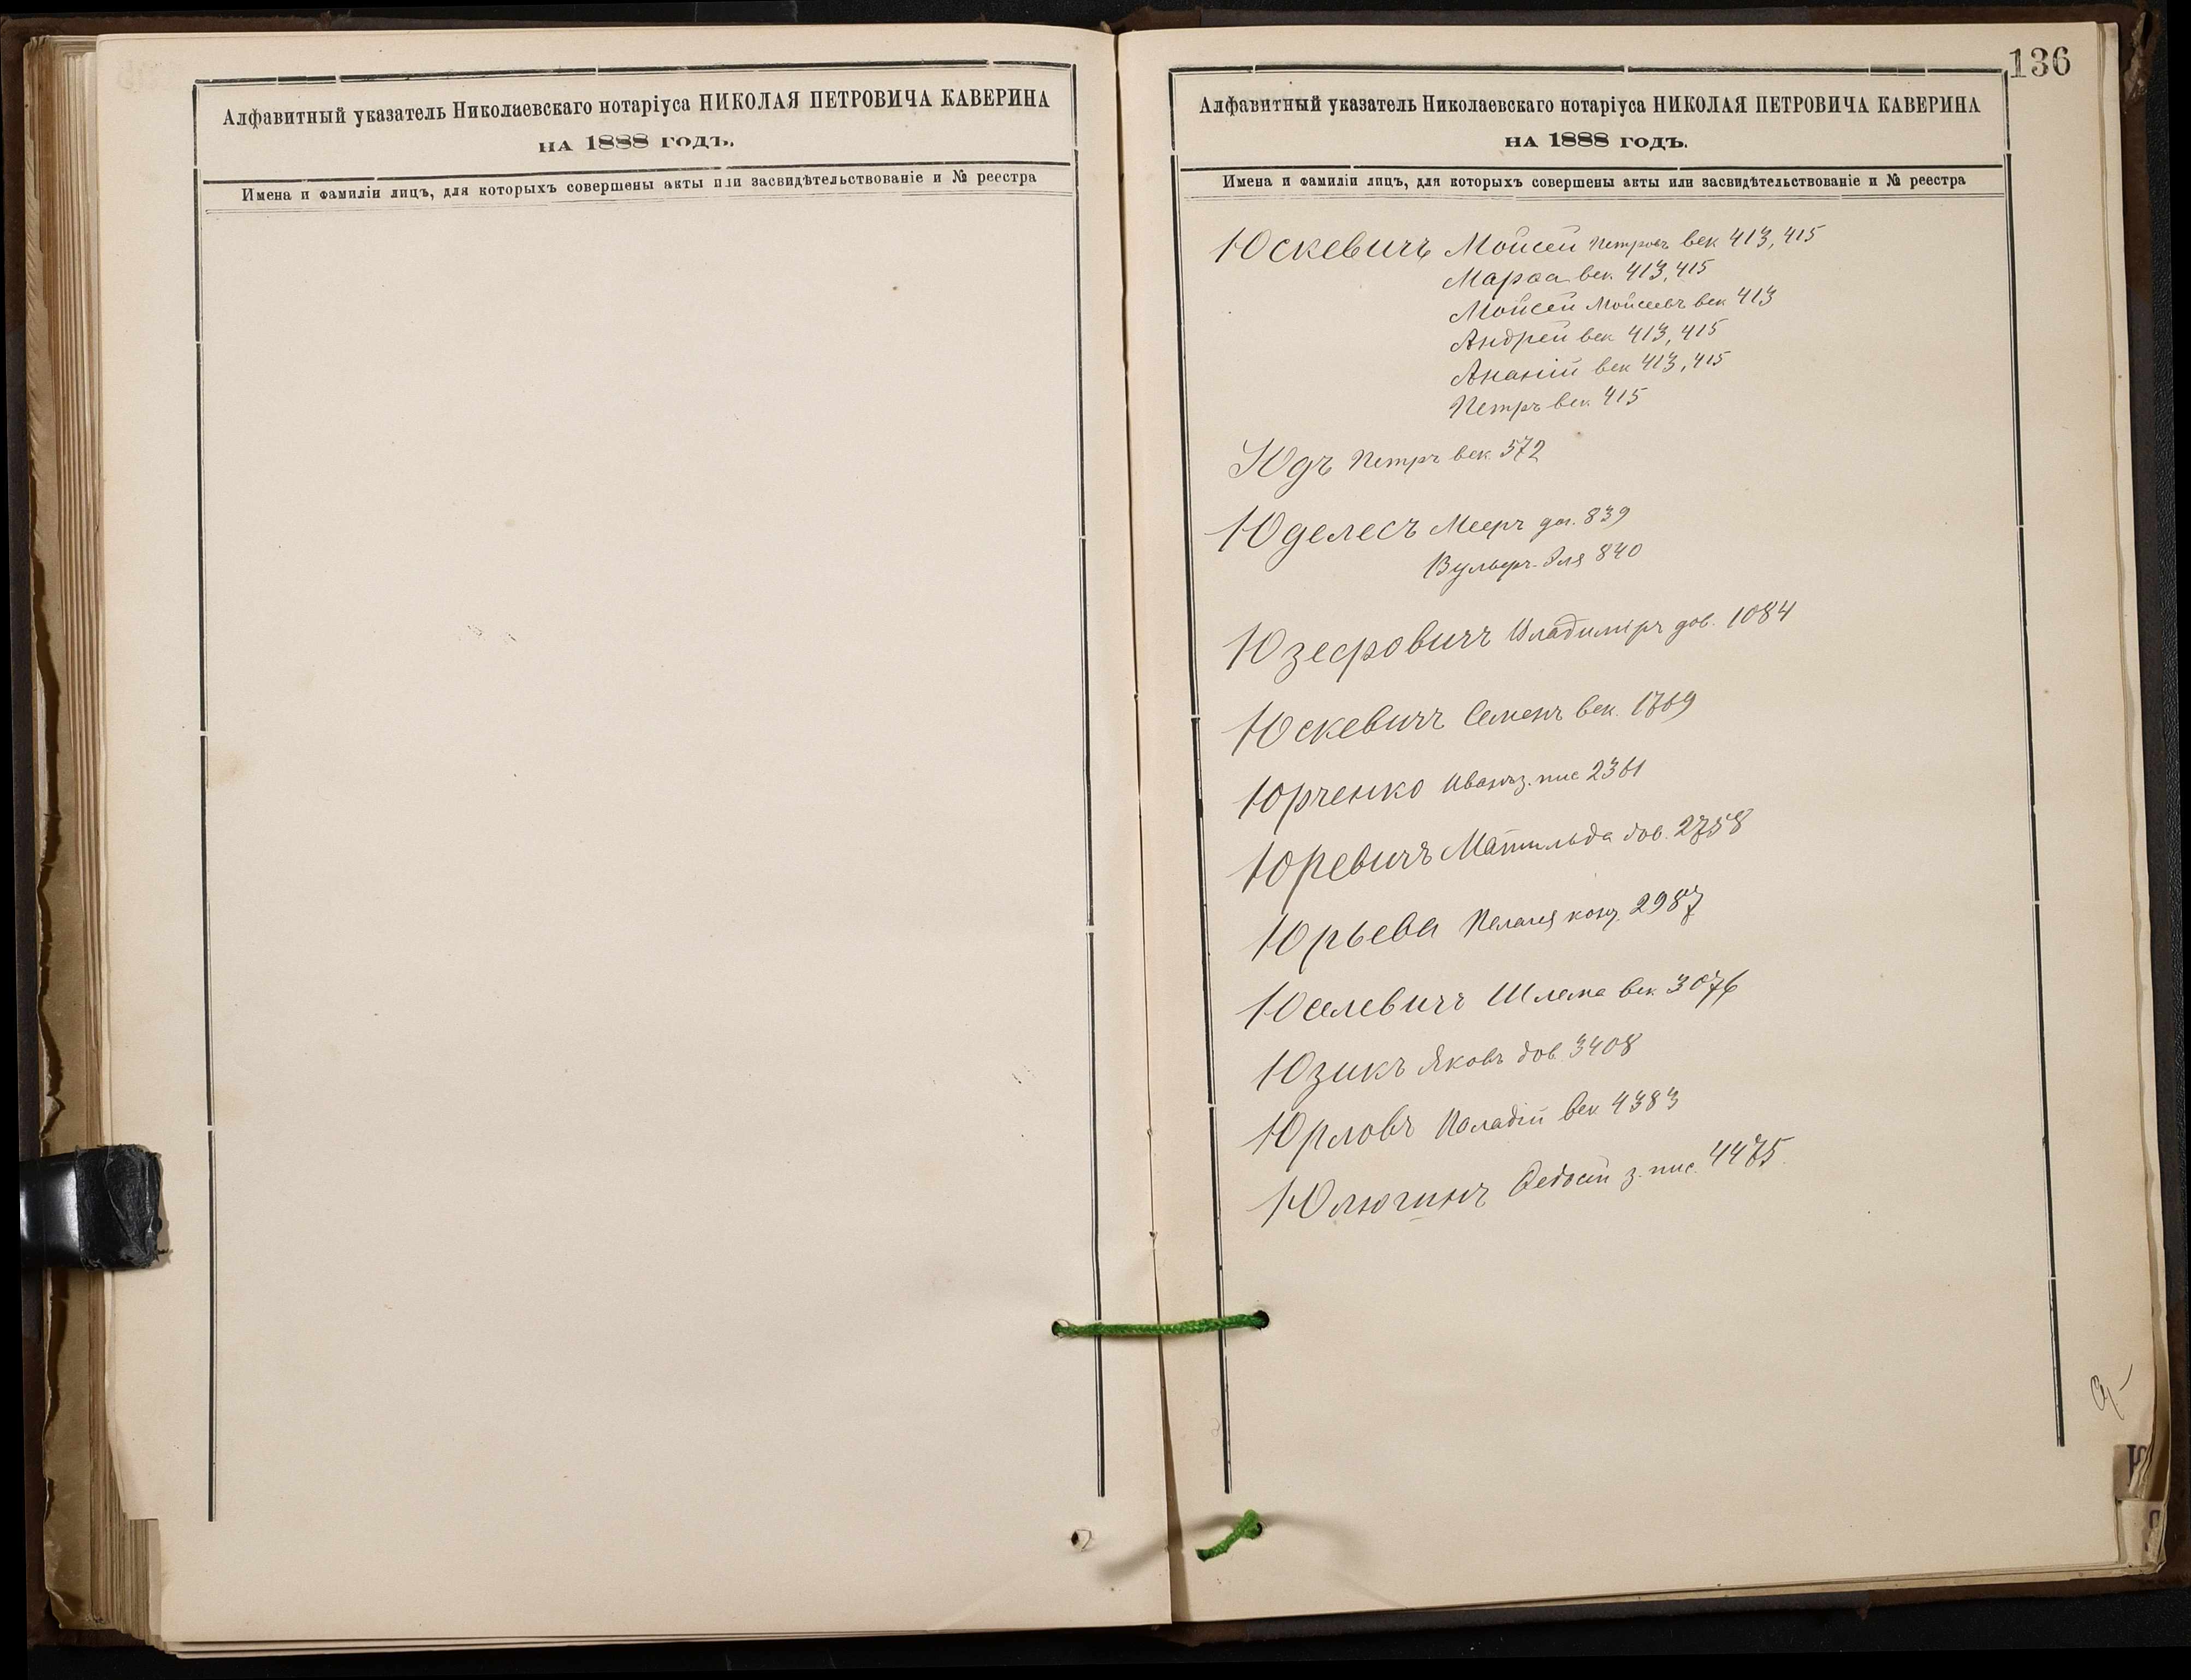 Алфавитный указатель Николаевскаго нотаріуса НИКОЛАЯ ПЕТРОВИЧА КАВЕРИНА
НА 1888 ГОДЪ.
Имена и фамиліи лицъ, для которыхъ совершены акты или засвидѣтельствованіе и № реестра
136
Алфавитный указатель Николаевскаго нотаріуса НИКОЛАЯ ПЕТРОВИЧА КАВЕРИНА
НА 1888 ГОДЪ.
Имена и фамиліи лицъ, для которыхъ совершены акты или засвидѣтельствованіе и № реестра
Юскевичъ Мойсей Петровъ век 413, 415
Марѳа век. 413, 415
Мойсей Мойсеевъ век 413
Андрей век 413, 415
Ананій век 413, 415
Петръ век 415
Юдъ Петръ век. 572
Юделесъ Мееръ 839
Вульфъ-Эля 840
Юзефовичъ Владиміръ дов. 1084
Юскевичъ Семенъ век. 1769
Юрченко Иванъ з. пис 2361
Юревичъ Матильда дов. 2758
Юрьева Пелагея 2987
Юселевичъ Шлема век 3076
Юзикъ Яковъ дов. 3408
Юрловъ Паладій век 4383
Юлюгинъ Ѳедосій з. пис. 4475